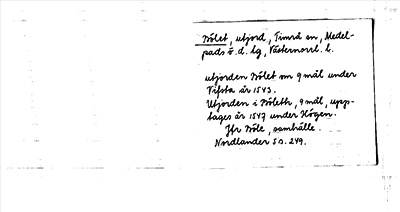 Bölet, utjord, Timrå sn, Medel-
pads ö. d. lg, Västernorrl. l.
utjorden Bölet om 9 mål under
Vifsta år 1543.
Utjorden i Böleth, 9 mål, upp-
tages år 1547 under Högen.
Jfr Böle, samhälle.
Nordlander s. 249.